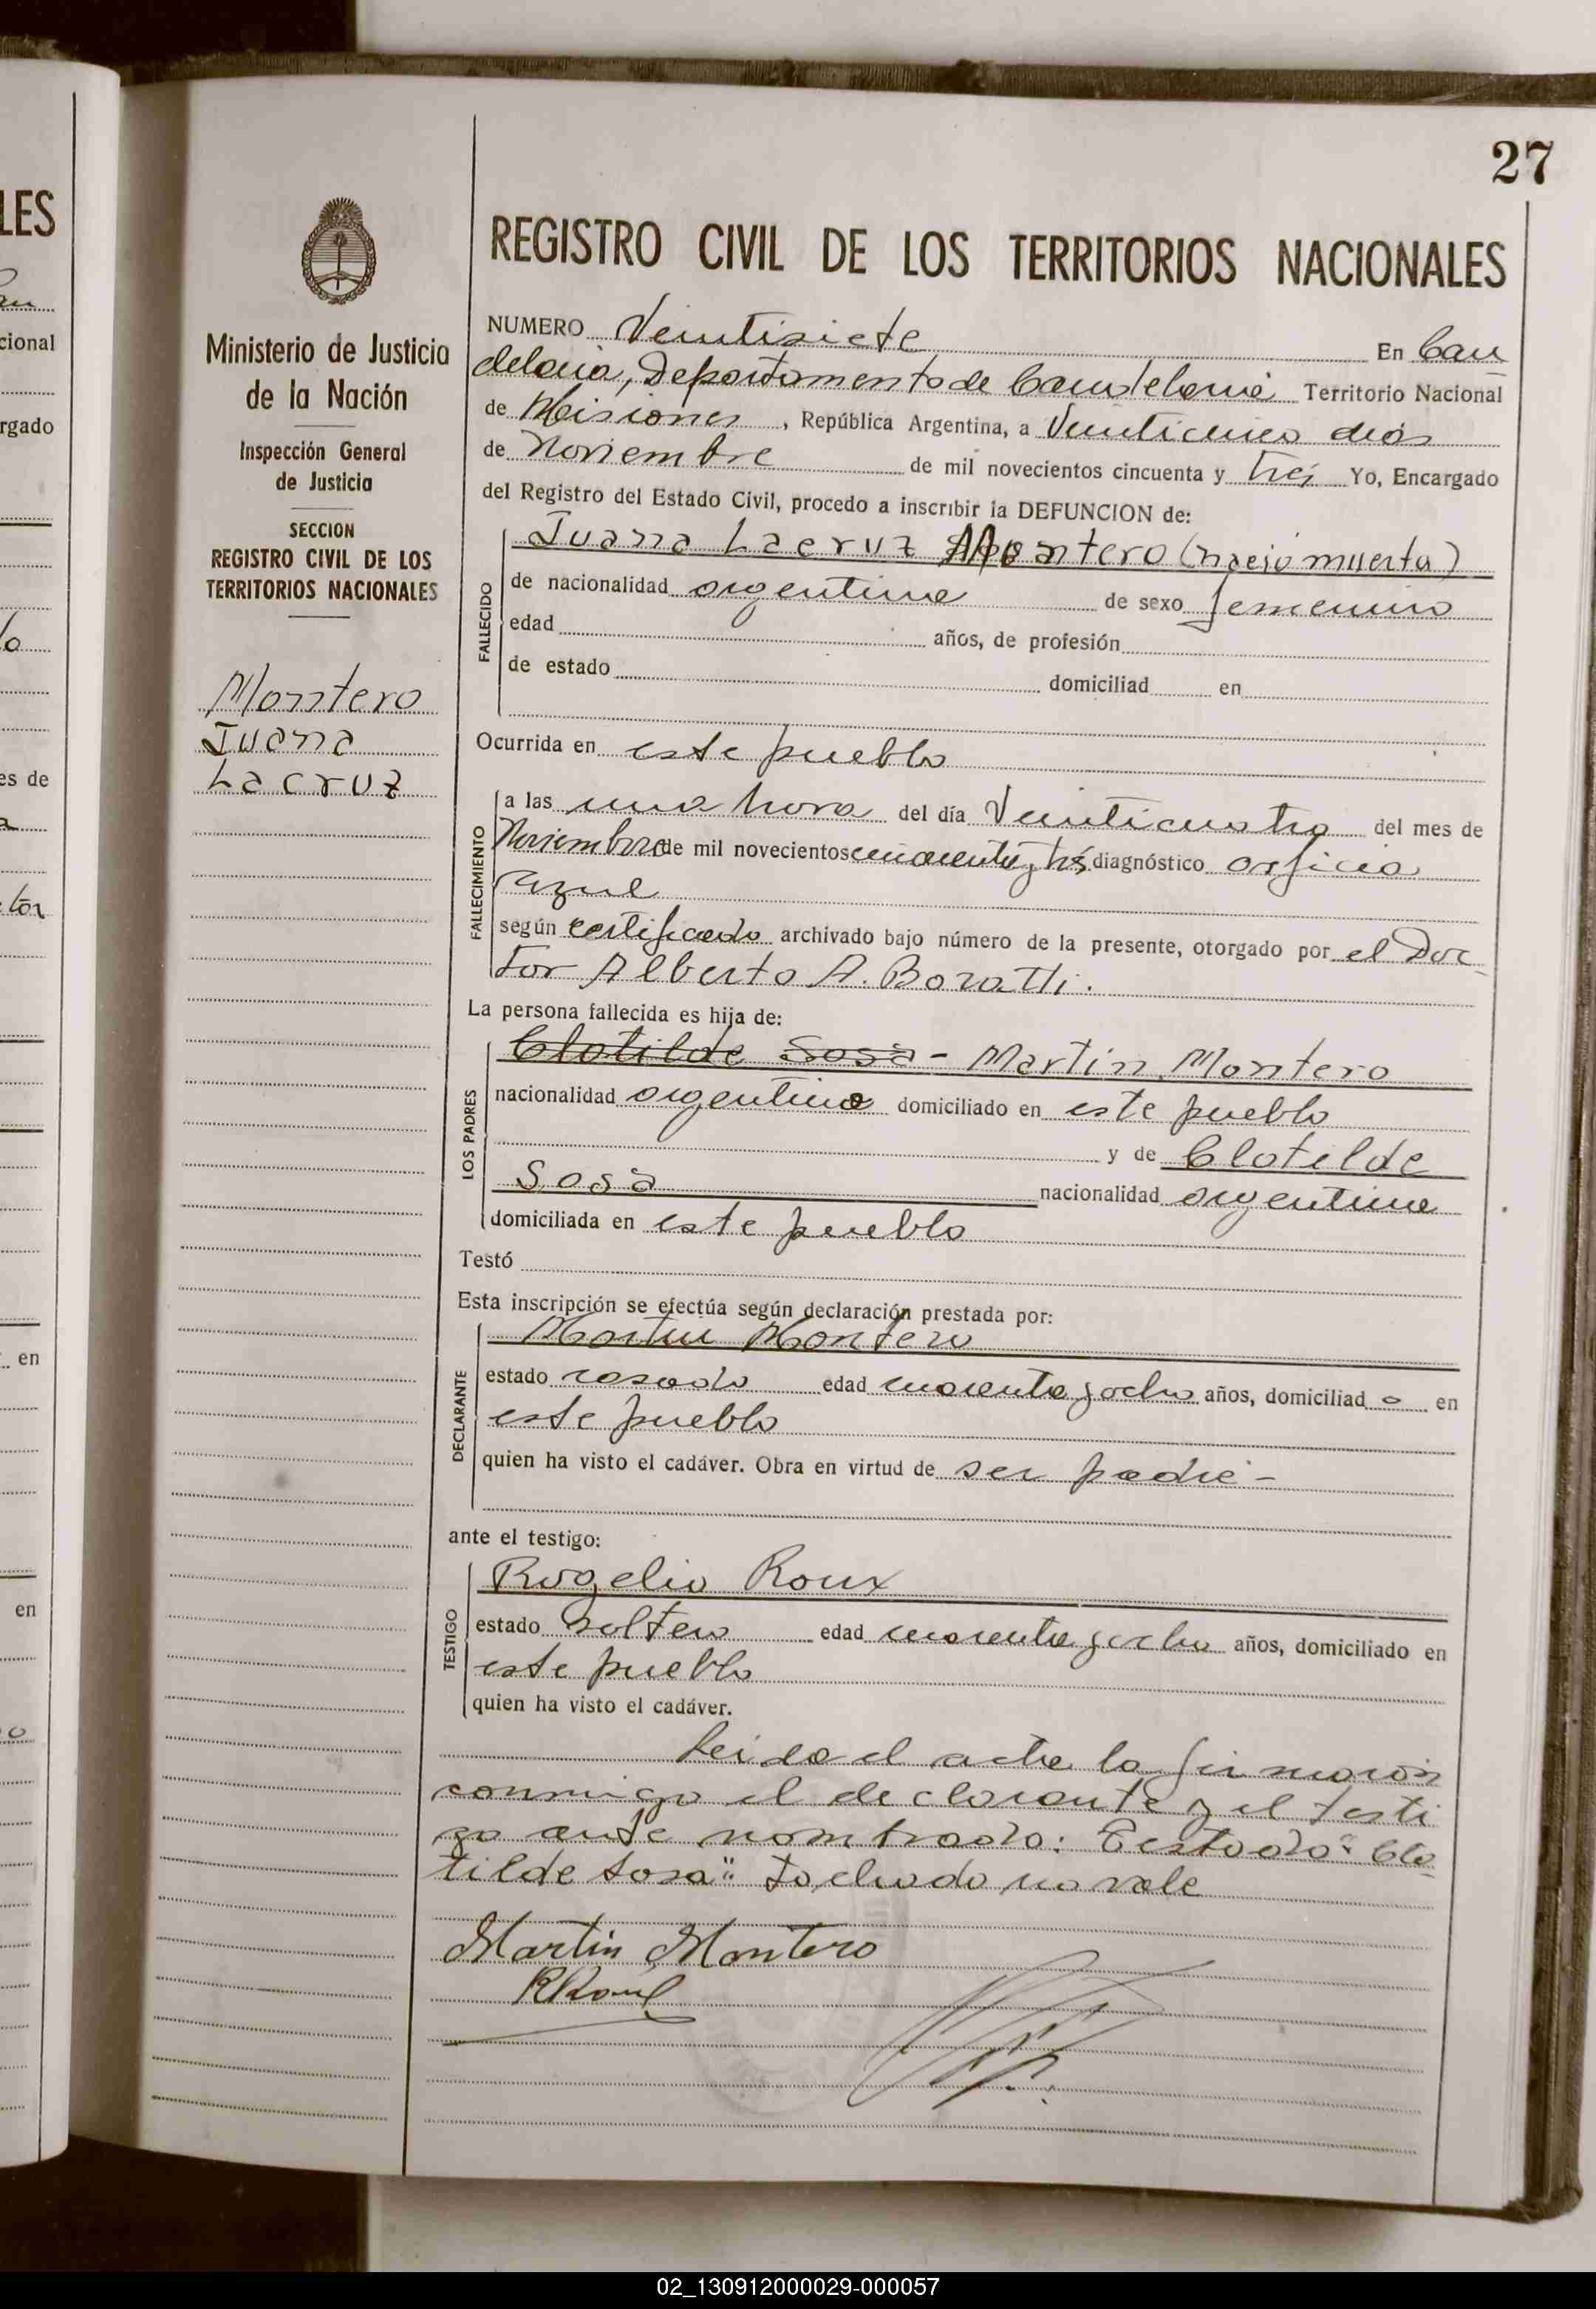 27
REGISTRO CIVIL DE LOS TERRITORIOS NACIONALES
Ministerio de Justicia
de la Nación
Inspección General
de Justicia
SECCION
REGISTRO CIVIL DE LOS
TERRITORIOS NACIONALES
Montero
Juana
Lacruz
NUMERO Veintisiete En Can
delaria, Departamento de Candelaria Territorio Nacional
de Misiones, República Argentina, a Veinticinco dias
de Noviembre de mil novecientos cincuenta y tres Yo, Encargado
del Registro del Estado Civil, procedo a inscribir la DEFUNCION de:
FALLECIDO
Juana Lacruz Montero (nació muerta)
de nacionalidad argentina de sexo femenino
edad años, de profesión
de estado domiciliad en
Ocurrida en este pueblo
FALLECIMIENTO
a las una hora del día Veinticuatro del mes de
Noviembre de mil novecientos cincuenta y tres diagnóstico asficia
azul
según certificado archivado bajo número de la presente, otorgado por el Doc-
tor Alberto A. Boratti.
La persona fallecida es hija de:
LOS PADRES
Clotilde Sosa - Martín Montero
nacionalidad argentino domiciliado en este pueblo
y de Clotilde
Sosa nacionalidad argentina
domiciliada en este pueblo
Testó
Esta inscripción se efectúa según declaración prestada por:
DECLARANTE
Martin Montero
estado casado edad cuarenta y ocho años, domiciliado en
este pueblo
quien ha visto el cadáver. Obra en virtud de ser padre -
ante el testigo:
TESTIGO
Rogelio Roux
estado soltero edad cuarenta y ocho años, domiciliado en
este pueblo
quien ha visto el cadáver.
Leida el acta la firmaron
conmigo el declarante y el testi
go ante nombrado: Testado "Clo-
tilde Sosa" tachado no vale
Martin Montero
R Roux
LES
cional
rgado
es de
en
en
02_130912000029-000057